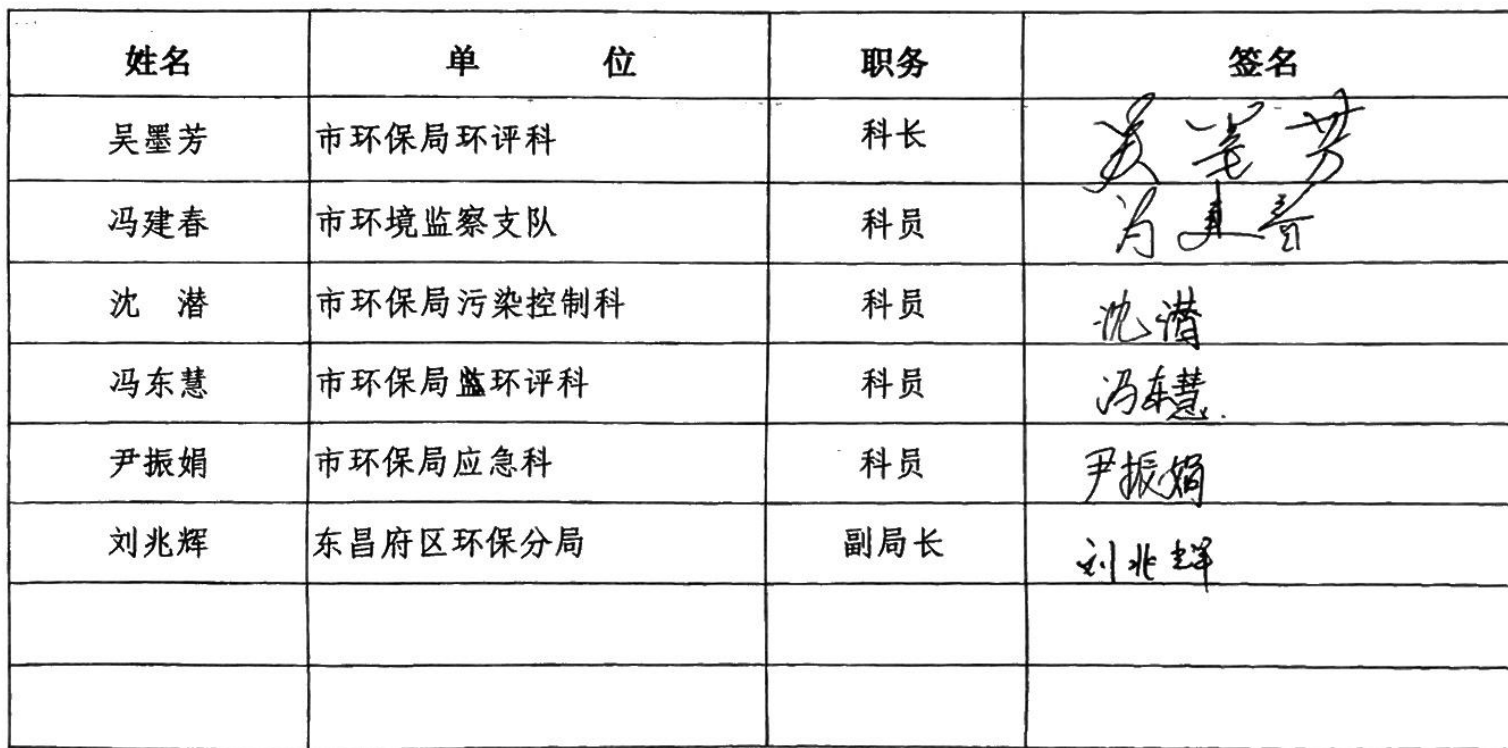 姓名 单 位 职务 签名
吴墨芳 市环保局环评科 科长 吴墨芳
冯建春 市环境监察支队 科员 冯建春
沈 潜 市环保局污染控制科 科员 沈潜
冯东慧 市环保局监环评科 科员 冯东慧
尹振娟 市环保局应急科 科员 尹振娟
刘兆辉 东昌府区环保分局 副局长 刘兆辉